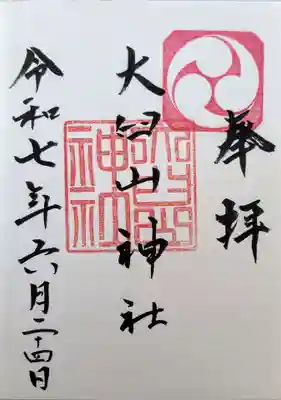 奉拝
大臼山神社
令和七年六月二十四日
神社